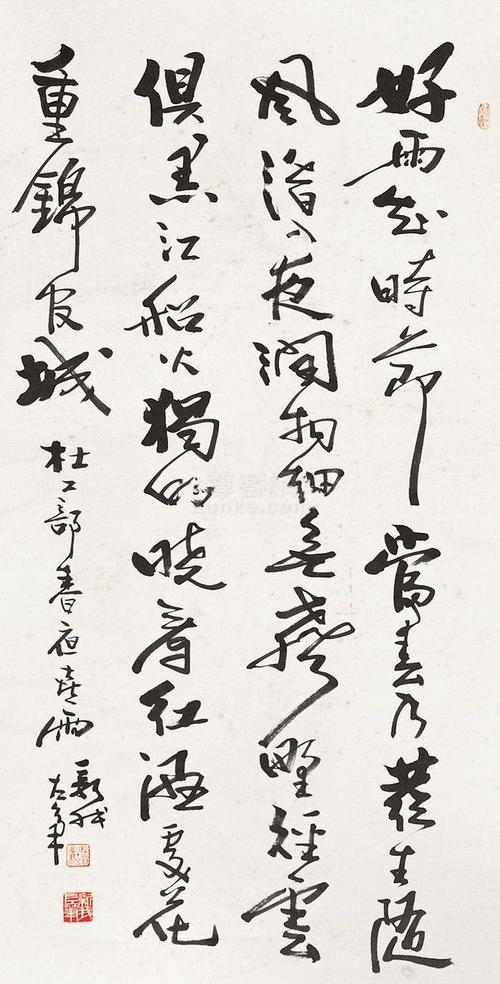 好雨知時節當春乃發生隨
風潛入夜潤物細無聲野徑雲
俱黑江船火獨明曉看紅濕處花
重錦官城
杜工部春夜喜雨
新我
左筆
zunke.com